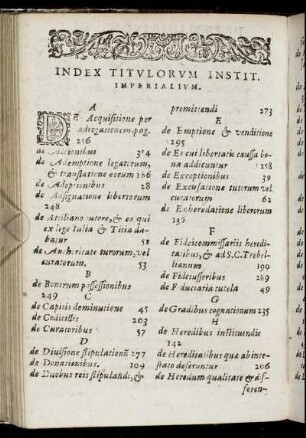 INDEX TITVLORVM INSTIT.
IMPERIALIVM.
A
DE Acquisitione per
adrogationem pag.
256
de Actionibus 304
de Ademptione legatorum,
& translatione eorum 186
de Adoptionibus 28
de Assignatione libertorum
248
de Atiliano tutore, & eo qui
ex lege Iulia & Titia da-
batur 58
de Authoritate tutorum, vel
curatorum. 53
B
de Bonorum possessionibus
249
C
de Capitis deminutione 45
de Codicillis 203
de Curatoribus 57
D
de Diuisione stipulationũ 277
de Donationibus. 109
de Duobus reis stipulandi, &
promittendi 273
E
de Emptione & venditione
295
de Eo cui libertatis causa bo-
na addicuntur 258
de Exceptionibus 39
de Excusatione tutorum vel
curatorum 62
de Exheredatione liberorum
136
F
de Fideicommissariis heredi-
tatibus, & ad S.C. Trebel-
lianum 190
de Fideiussoribus 289
de Fiduciaria tutela 49
G
de Gradibus cognationum 235
H
de Heredibus instituendis
142
de Hereditatibus quæ ab inte-
stato deferuntur 206
de Heredum qualitate & dif-
feren-